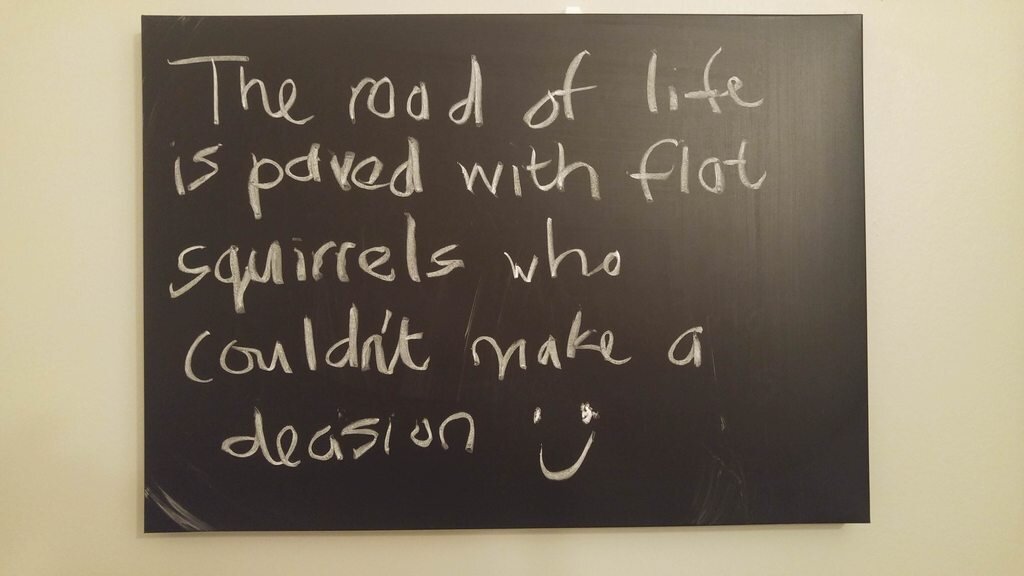 The road of life
is paved with flat
squirrels who
couldn't make a
decision